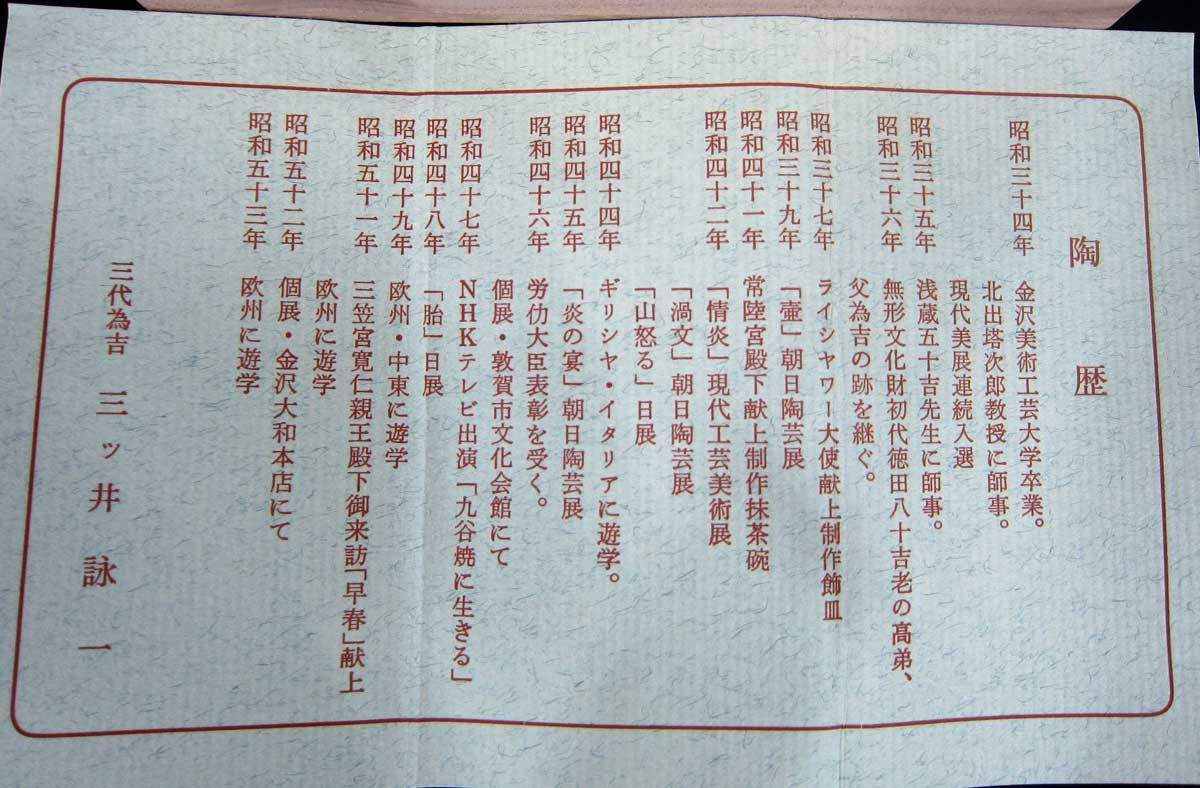 陶歴
昭和三十四年 金沢美術工芸大学卒業。
北出塔次郎教授に師事。
現代美展連続入選
昭和三十五年 浅蔵五十吉先生に師事。
昭和三十六年 無形文化財初代徳田八十吉老の高弟、
父為吉の跡を継ぐ。
昭和三十七年 ライシャワー大使献上制作飾皿
昭和三十九年 「壷」朝日陶芸展
昭和四十一年 常陸宮殿下献上制作抹茶碗
昭和四十二年 「情炎」現代工芸美術展
「渦文」朝日陶芸展
「山怒る」日展
昭和四十四年 ギリシヤ・イタリアに遊学。
昭和四十五年 「炎の宴」朝日陶芸展
昭和四十六年 労仂大臣表彰を受く。
個展・敦賀市文化会館にて
昭和四十七年 NHKテレビ出演「九谷焼に生きる」
昭和四十八年 「胎」日展
昭和四十九年 欧州・中東に遊学
昭和五十一年 三笠宮寛仁親王殿下御来訪「早春」献上
欧州に遊学
昭和五十二年 個展・金沢大和本店にて
昭和五十三年 欧州に遊学
三代為吉 三ッ井詠一